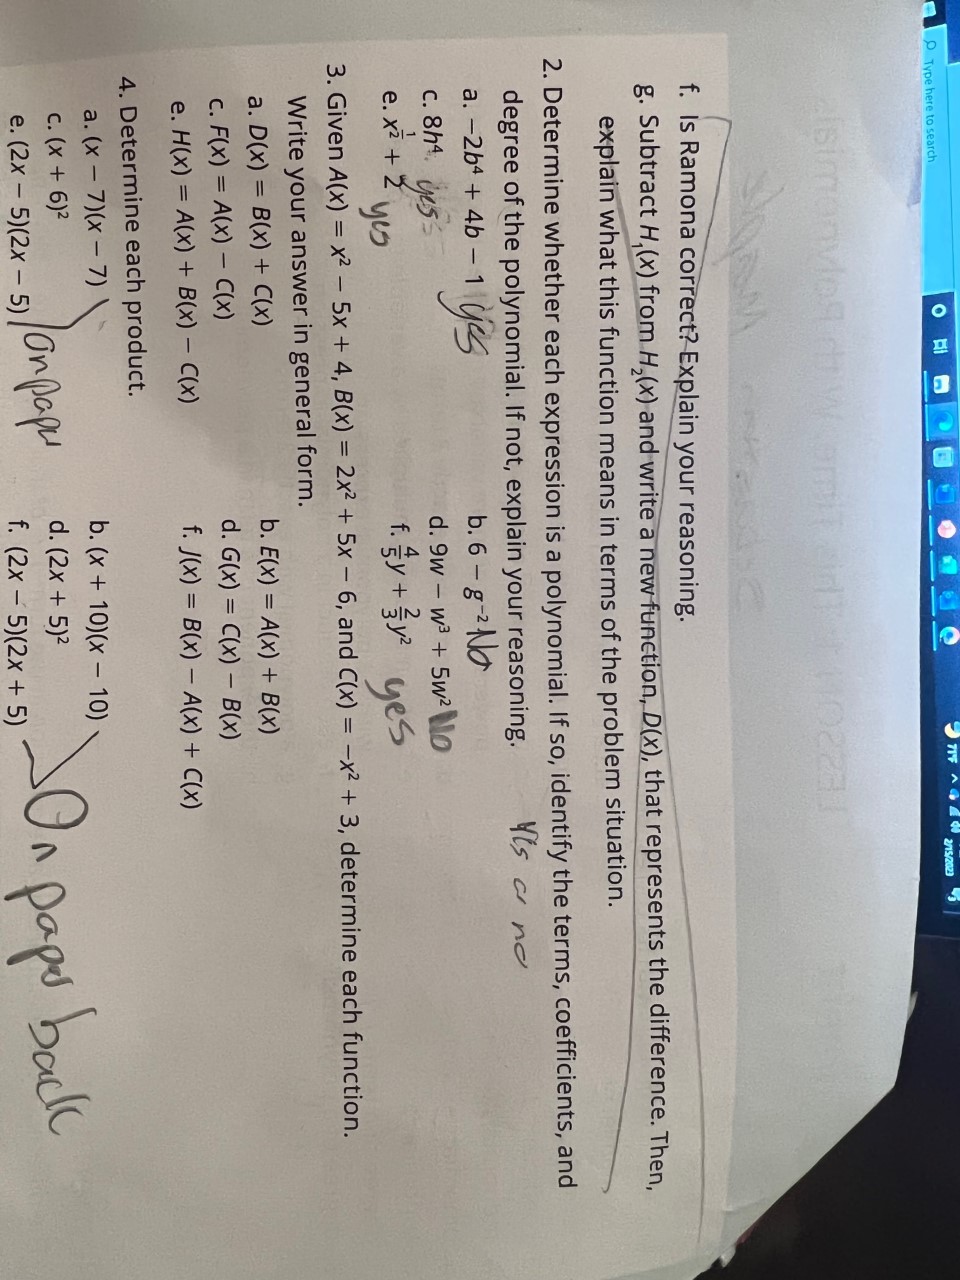 Type here to search
71°F
2/15/2023
f. Is Ramona correct? Explain your reasoning.
g. Subtract H₁(x) from H₂(x) and write a new function, D(x), that represents the difference. Then,
explain what this function means in terms of the problem situation.
2. Determine whether each expression is a polynomial. If so, identify the terms, coefficients, and
degree of the polynomial. If not, explain your reasoning.
yes or no
a. −2b⁴ + 4b − 1 yes
b. 6 − g⁻² No
c. 8h⁴ yes
d. 9w − w³ + 5w² No
e. x^(1/2) + 2 yes
f. 4/5y + 2/3y² yes
3. Given A(x) = x² − 5x + 4, B(x) = 2x² + 5x − 6, and C(x) = −x² + 3, determine each function.
Write your answer in general form.
a. D(x) = B(x) + C(x)
b. E(x) = A(x) + B(x)
c. F(x) = A(x) − C(x)
d. G(x) = C(x) − B(x)
e. H(x) = A(x) + B(x) − C(x)
f. J(x) = B(x) − A(x) + C(x)
4. Determine each product.
a. (x − 7)(x − 7)
b. (x + 10)(x − 10)
c. (x + 6)²
d. (2x + 5)²
e. (2x − 5)(2x − 5)
f. (2x − 5)(2x + 5)
On paper back